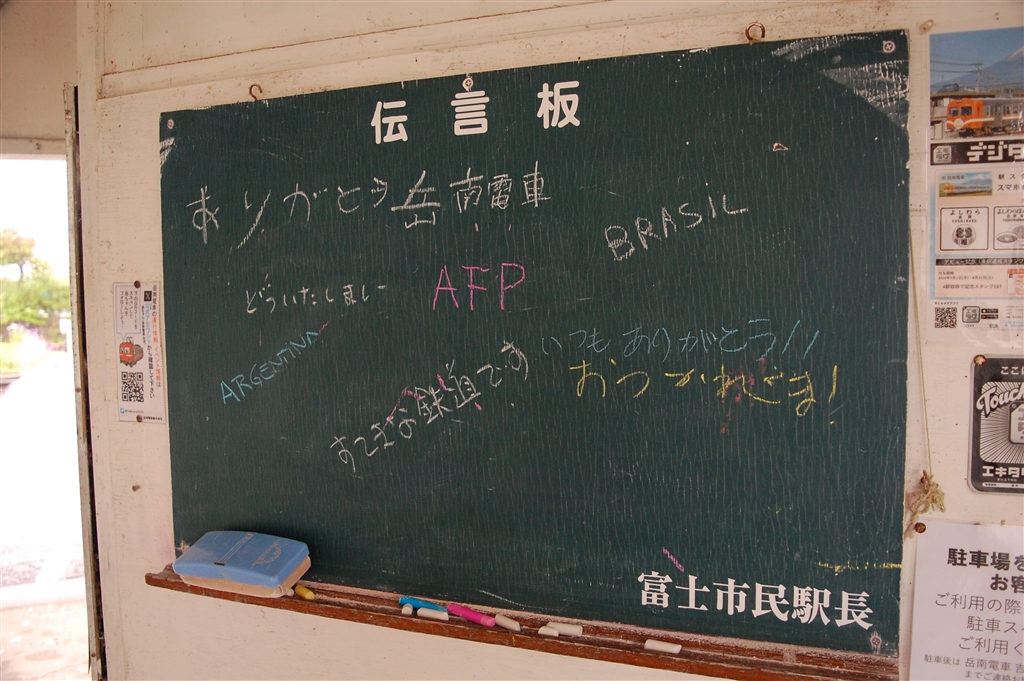 伝言板
ありがとう岳南電車
BRASIL
どういたしまし
AFP
ARGENTINA
いつもありがとう!!
すてきな鉄道です
おつかれさま!
富士市民駅長
デジタ
駅ス
スマホ
よしわら
エキタ
ここに
Touch
駐車場を
お客
ご利用の際
駐車ス
ご利用く
駐車後は 岳南電車 吉
までご連絡お